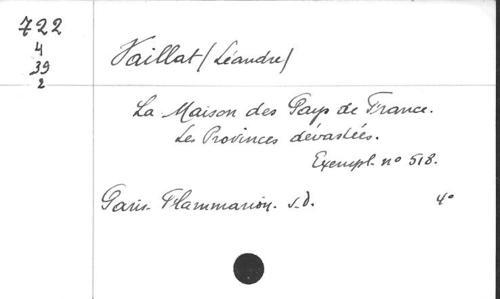 722
4
39
2
Vaillat (Léandre)
La Maison des Pays de France.
Les Provinces dévastées.
Exempl. nº 518.
Paris. Flammarion. s.d. 4º